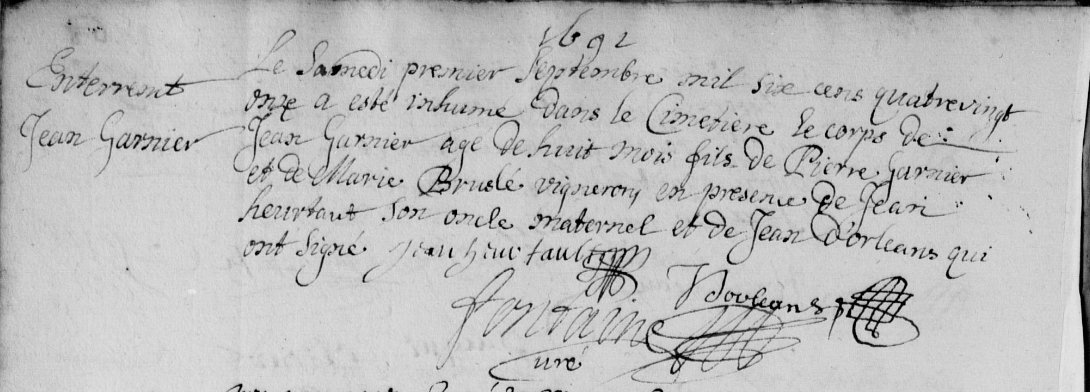 1692
Enterremt
Jean Garnier
Le Samedi premier Septembre mil six cens quatrevingt
onze a esté inhumé dans le Cimetiere le corps de
Jean Garnier agé de huit mois fils de Pierre Garnier
et de Marie Bruslé vignerons en presence de Jean
heurtaut son oncle maternel et de Jean d'orleans qui
ont signé Jean heurtault
Dorleans
fontaine
curé